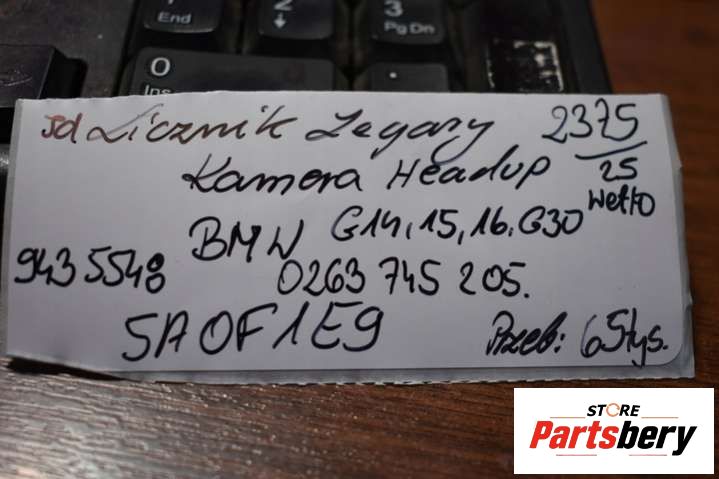 1
End
2
↓
3
Pg Dn
0
Ins
sd Licznik Zegary 2375
Kamera Headup 25
BMW G14,15,16.G30 netto
9435548 0263 745 205.
5A0F1E9 Przeb: 65tys.
STORE
Partsbery